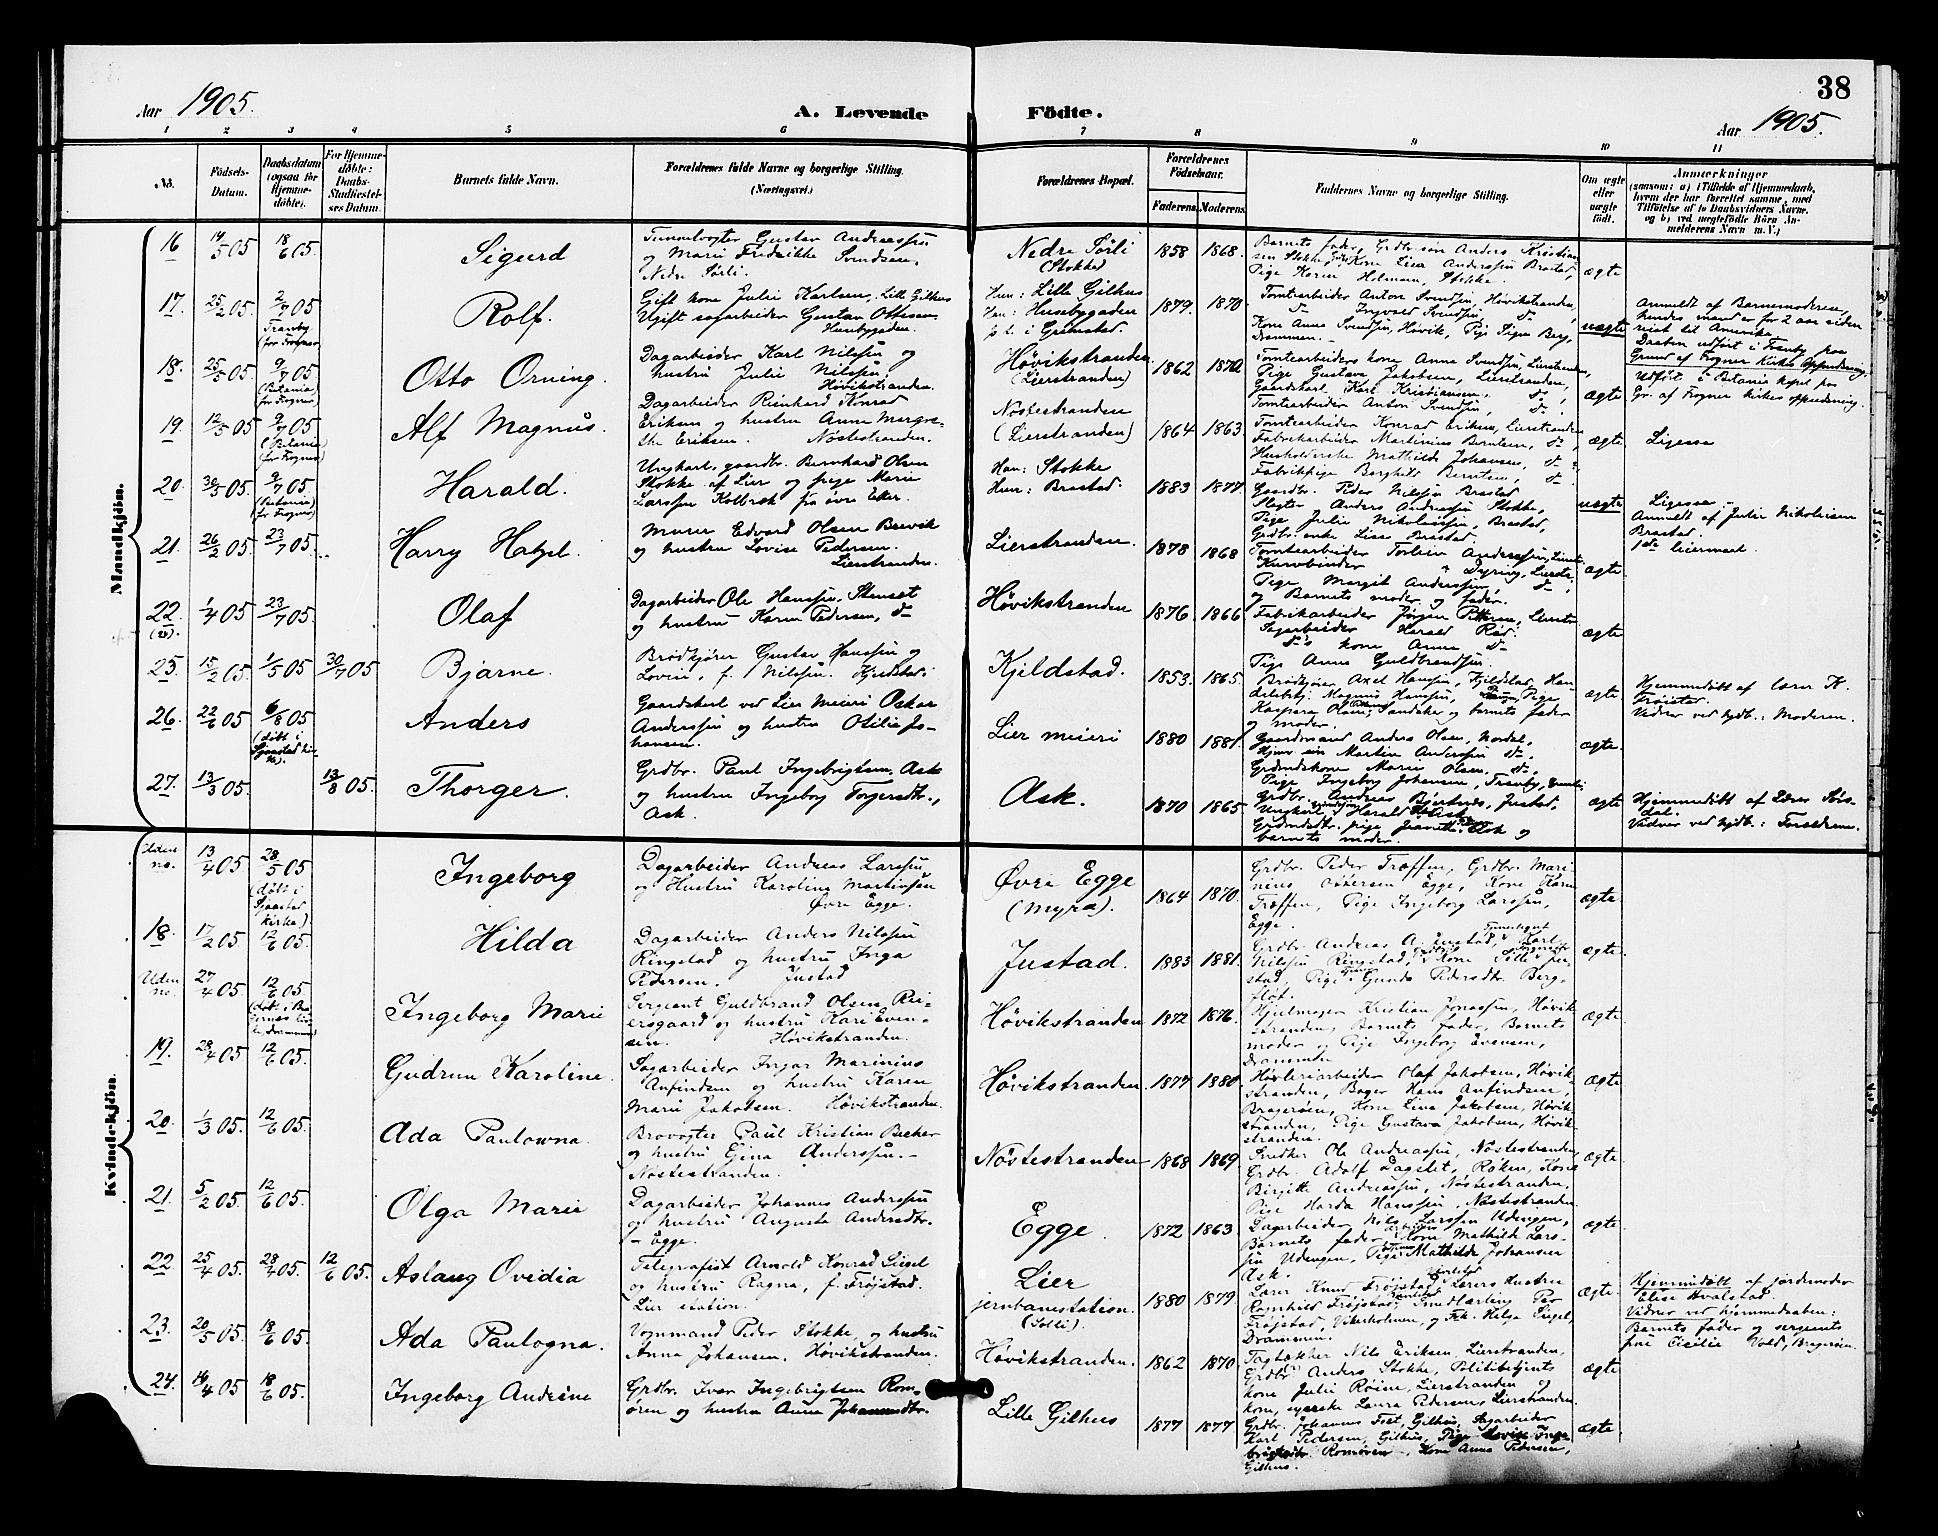 38
Aar 1905.
A. Levende
Födte.
Aar 1905.
1 2 3 4 5 6 7 8 9 10 11
No.
Födsels-Datum.
Daabsdatum (ogsaa for Hjemmedöbte).
For Hjemmedöbte: Daabs-Stadfæstelses Datum.
Barnets fulde Navn.
Forældrenes fulde Navne og borgerlige Stilling. (Næringsvei.)
Forældrenes Bopæl.
Forældrenes Födselsaar.
Faderens. Moderens.
Faddernes Navne og borgerlige Stilling.
Om ægte eller uægte födt.
Anmærkninger (saasom: a) i Tilfælde af Hjemmedaab, hvem der har forrettet samme, med Tilföielse af to Daabsvidners Navne, og b) ved uægtefödte Börn Anmelderens Navn m. V.)
Mandkjön.
16 14/5 05 18/6 05 Sigurd
Tunnelvogter Gustav Andreassen
og Marie Fredrikke Svendsen,
Nedre Sørli.
Nedre Sørli
(Stokke)
1858 1868.
Barnets fader, Grdbr. søn Anders Kristian-
sen Stokke, Kone Lise Anderssen Brastad,
Pige Karen Helmsen, Stokke.
ægte
17. 25/2 05. 2/7 05 Tranby (for Frogner) Rolf.
Gift kone Julie Karlsen, Lille Gilhus
Ugift sagarbeider Gustav Ottesen
Husebygaden.
Hun: Lille Gilhus
Han: Husebygaden
p. t. i Grimstad.
1879. 1870.
Tomtearbeider Anton Svendsen, Høvikstranden,
do Ingvald Svendsen, do
Kone Anna Svendsen, Høvik, Pige Signe Berg,
Drammen.
uægte
Anmeldt af Barnemoderen,
hendes mand er for 2 aar siden
reist til Amerika.
Daaben udført i Tranby paa
Grund af Frogner Kirkes oppudsning.
18. 25/5 05. 9/7 05 (Betania for Frogner) Otto Orning.
Dagarbeider Karl Nilssen og
hustru Julie Nilssen,
Høvikstranden.
Høvikstranden.
(Lierstranden)
1862 1870
Tomtearbeiders kone Anna Svendsen, Lierstranden,
Pige Gustava Jakobsen, Lierstranden,
Gaardskarl Karl Kristiansen, do,
Tomtearbeider Anton Svendsen, do.
ægte
Udført i Betania kapel paa
Gr. af Frogner Kirkes oppudsning.
19 12/5 05 9/7 05 (Betania for Frogner) Alf Magnus.
Dagarbeider Reinhard Konrad
Eriksen og hustru Anne Margre-
the Eriksen. Nøstestranden.
Nøstestranden
(Lierstranden)
1864 1863.
Tomtearbeider Konrad Eriksen, Lierstranden
Fabrikarbeider Martinius Berntsen, do
Husholderske Mathilde Johansen, do
Fabrikpige Borghild Berntsen, do.
ægte.
Ligesaa
20. 30/5 05. 9/7 05 (Betania for Frogner) Harald.
Ungkarl, gaardbr. Bernhard Olsen
Stokke af Lier og pige Marie
Larssen Kolbræk fra øvre Eker.
Han: Stokke
Hun: Brastad:
1883 1877
Gaardbr. Peder Nilssen Brastad
Slagter Anders Andreassen Stokke,
Pige Julie Nikolaissen, Brastad,
Grdbr. enke Lise Brastad.
uægte
Ligesaa
Anmeldt af Julie Nikolaisen
Brastad.
1ste leiermaal.
21. 26/2 05. 23/7 05. Harry Hatzel.
Murer Edvard Olsen Brevik
og hustru Lovise Pedersen.
Lierstranden.
Lierstranden.
1878 1868
Tomtearbeider Torleiv Anderssen, Lierstr.
Kurvbinder Dyring, Lierstr.,
Pige Margit Anderssen, do,
og Barnets moder og fader.
ægte.
22. (23). 1/4 05 23/7 05. Olaf
Dagarbeider Ole Hanssen, Stenset
og hustru Karen Pedersen, do
Høvikstranden
1876 1866
Fabrikarbeider Jørgen Pettersen, Lierstr.
Sagarbeider Harald Rød.
do's kone Anna do
Pige Anna Guldbrandsen.
ægte
25. 15/2 05. 1/5 05 30/7 05 Bjarne.
Brødkjører Gustav Hanssen og
Lovise, f. Nilssen. Kjeldstad.
Kjeldstad.
1853. 1865.
Brødkjører Axel Hanssen, Kjeldstad, Han-
delsbetj. Magnus Hanssen, Pige
Kaspara Olsen, Sandaker og barnets fader
og moder.
ægte
Hjemmedøbt af lærer K.
Frøistad.
Vidner ved hjdb.: Moderen.
26. 22/6 05 6/8 05 (døbt i Sjaastad kirke). Anders
Gaardskarl ved Lier Meieri Oskar
Anderssen og hustru Otilie Jo-
hansen.
Lier meieri
1880 1881.
Gaardmand Anders Olsen, Nordal,
Hjemv. søn Martin Anderssen do.
Grdmdskone Marie Olsen, do.
Pige Ingeborg Johansen, Tranby,
ægte.
27. 13/3 05. 13/8 05. Thorger.
Grdbr. Paul Ingebrigtsen, Ask
og hustru Ingeborg Torgersdtr.,
Ask.
Ask.
1870 1865.
Grdbr. Andreas Bjertnæs, Justad,
Ungkarl Harald Ask
Grdmdsdtr. pige Jeanette Ask og
barnets moder.
ægte
Hjemmedøbt af Lærer Sørs-
dal.
Vidner ved hjdb.: Forældrene.
Kvindekjön.
Uden no. 13/4 05 28/5 05 (døbt i Sjaastad kirke). Ingeborg
Dagarbeider Andreas Larssen
og Hustru Karoline Martinsen
Øvre Egge.
Øvre Egge
(Myra).
1864 1870.
Grdbr. Peder Træffen, Grdbr. Mari-
nius Egge, Kone Karen
Træffen, Pige Ingeborg Larssen,
Egge.
ægte.
18. 17/2 05 12/6 05. Hilda
Dagarbeider Anders Nilssen
Ringstad og hustru Inga
Pedersen. Justad
Justad.
1883 1881.
Grdbr. Andreas Justad, Karl
Nilssen Ringstad, Kone Ju-
stad, Pige Gunda Pedersdtr. Berg-
fløt.
ægte.
Uden no. 27/4 05 12/6 05. Ingeborg Marie
Sergeant Guldbrand Olsen Rei-
ersgaard og hustru Kari Even-
sen. Høvikstranden.
Høvikstranden
1872 1876.
Hjulmager Kristian Jonassen, Høvik-
stranden, Barnets fader, Barnets
moder og Pige Ingeborg Evensen,
Drammen
ægte
19. 28/4 05 12/6 05. Gudrun Karoline.
Sagarbeider Ingar Marinius
Anfindsen og hustru Karen
Marie Jakobsen. Høvikstranden.
Høvikstranden.
1877 1880.
Høvleriarbeider Olaf Jakobsen, Høvik-
stranden, Bager Hans Anfindsen,
Bragerøen, Kone Lina Jakobsen, Høvik-
stranden, Pige Gustava Jakobsen, Høvik-
stranden.
ægte
20. 1/3 05. 12/6 05. Ada Paulowna.
Brovogter Paul Kristian Becker
og hustru Ejina Anderssen.
Nøstestranden.
Nøstestranden
1868 1869
Snedker Ole Andreassen, Nøstestranden,
Grdbr. Adolf Dagslet, Røken, Kone
Birgitte Andreassen, Nøstestranden,
Pige Harda Hanssen, Nøstestranden
ægte.
21. 5/2 05. 12/6 05. Olga Marie
Dagarbeider Johannes Anderssen
og hustru Augusta Andersdtr.
Egge.
Egge.
1872 1863.
Dagarbeider Nils Larssen Udengen,
Barnets fader, Kone Mathilde Lars-
sen Udengen, Pige Mathilde Johansen
Ask.
ægte.
22. 25/4 05. 28/4 05. 12/6 05. Aslaug Ovidia
Telegrafist Arnold Konrad Sigel
og hustru Ragna, f. Frøjstad.
Lier station.
Lier
jernbanestation.
(Solli).
1880 1879.
Lærer Knud Frøjstad, Lærers Hustru
Romhild Frøjstad, Smedlærling Per
Frøjstad, Vikerholmen, og Frk. Helga Sigel,
Drammen.
ægte.
Hjemmedøbt af jordemoder
Elise Hvalstad.
Vidner ved hjemmedaaben:
Barnets fader og sergeants
frue Cicilie Vold, Bragerøen.
23. 20/5 05. 18/6 05. Ada Paulogna.
Vognmand Peder Stokke, og hustru
Anna Johansen. Høvikstranden.
Høvikstranden.
1862 1870
Tagtækker Nils Eriksen, Lierstranden,
Grdbr. Anders Stokke, Politibetjents
kone Julie Røine, Lierstranden og
kone, syerske Laura Pedersen, Lierstranden.
ægte
24. 16/4 05 18/6 05. Ingeborg Andrine
Grdbr. Ivar Ingebrigtsen Rom-
øren og hustru Anna Johannesdtr.
Lille Gilhus
1877 1877
Grdbr. Johannes Fost, Gilhus, Sagarbeider
Karl Pedersen, Gilhus, Pige Lovise Inge-
brigtsdtr. Romøren, Kone Anna Pedersen,
Gilhus.
ægte.